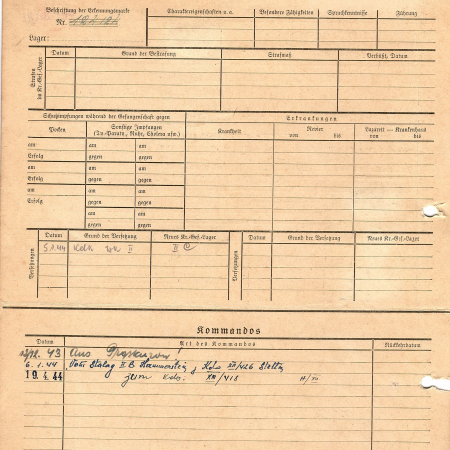 Beschriftung der Erkennungsmarke
Nr.
Lager:
Charaktereigenschaften u. a.
Besondere Fähigkeiten
Sprachkenntnisse
Führung
Strafen im Kr.-Gef.-Lager
Datum
Grund der Bestrafung
Strafmaß
Verbüßt, Datum
Schutzimpfungen während der Gefangenschaft gegen
Erkrankungen
Pocken
Sonstige Impfungen
(Ty.-Paraty., Ruhr, Cholera usw.)
Krankheit
Revier
von bis
Lazarett — Krankenhaus
von bis
am am am
Erfolg gegen gegen
am am am
Erfolg gegen gegen
am am am
Erfolg gegen gegen
am am
gegen gegen
Versetzungen
Datum
Grund der Versetzung
Neues Kr.-Gef.-Lager
Versetzungen
Datum
Grund der Versetzung
Neues Kr.-Gef.-Lager
5.1.44 II II C
Kommandos
Datum
Art des Kommandos
Rückkehrdatum
43 aus
6.1.44 Vom Stalag II B Hammerstein z. Kdo XII/426 Stettin
19.4.44 zum Kdo. XII/418